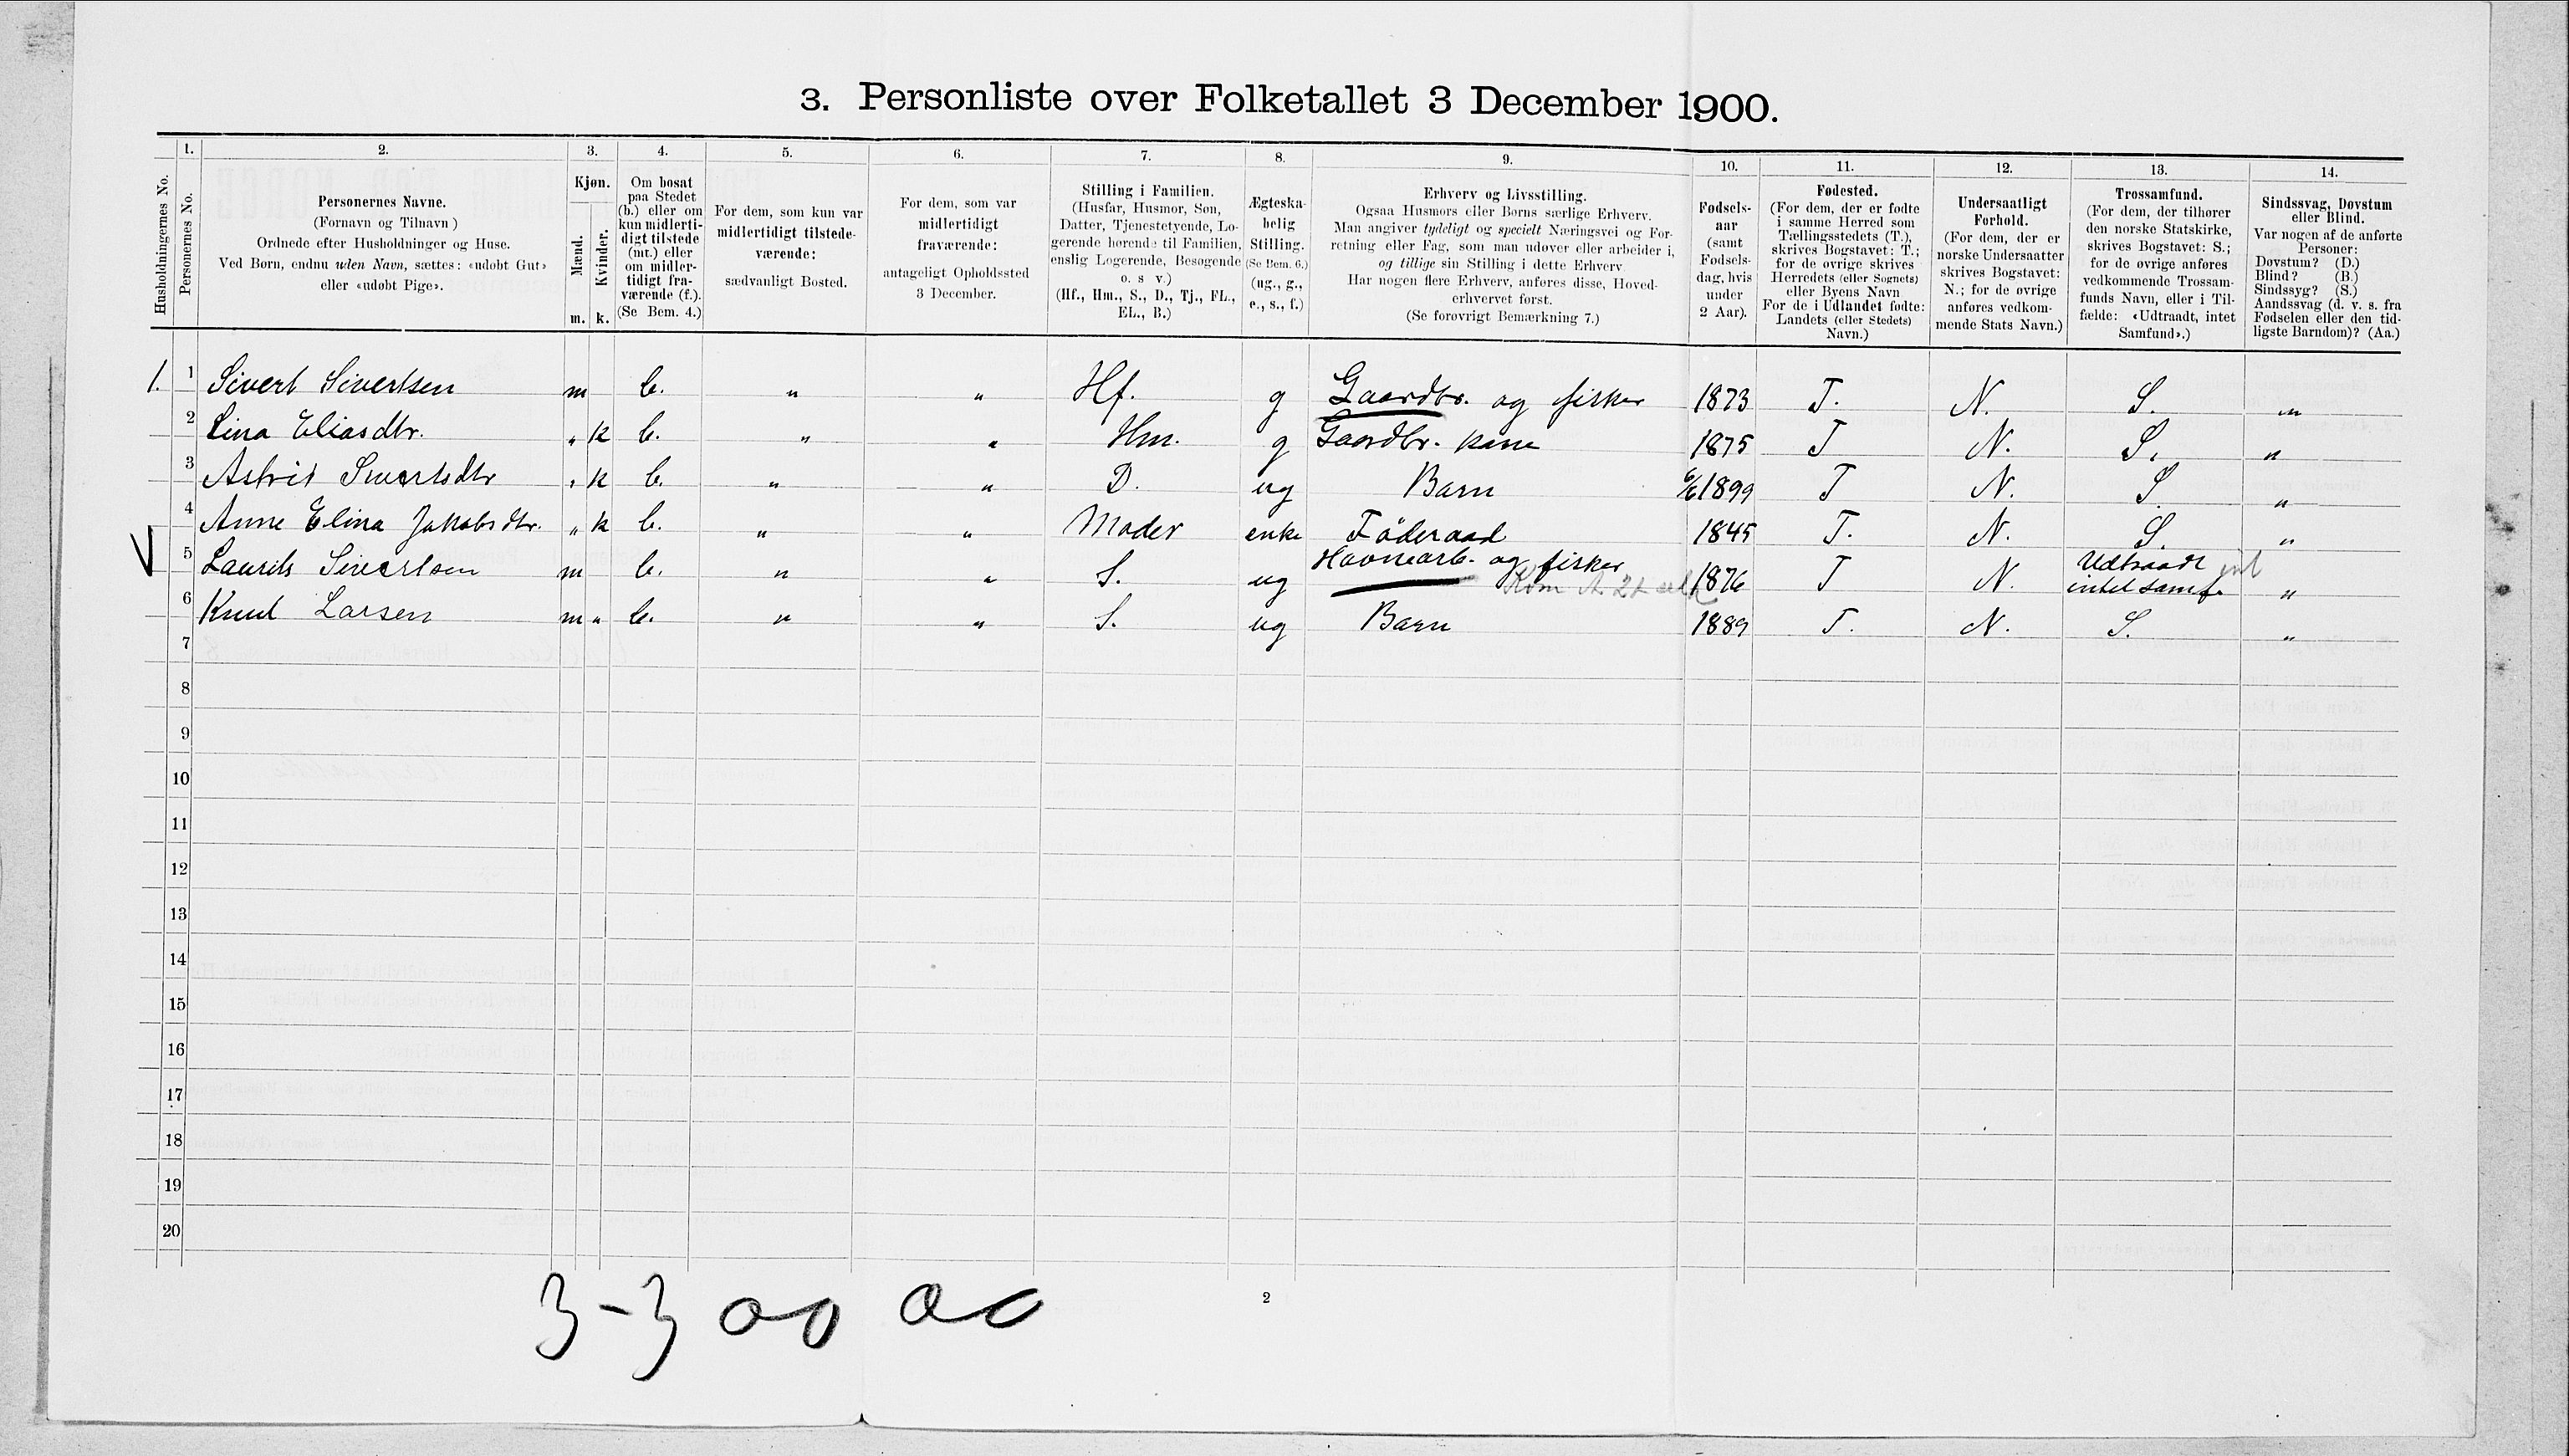 3. Personliste over Folketallet 3 December 1900.
1. 2. 3. 4. 5. 6. 7. 8. 9. 10. 11. 12. 13. 14.
Husholdningernes No.
Personernes No.
Personernes Navne.
(Fornavn og Tilnavn )
Ordnede efter Husholdninger og Huse.
Ved Børn, endnu uden Navn, sættes: «udøbt Gut»
eller «udøbt Pige».
Kjøn.
Mænd.
Kvinder.
m. k.
Om bosat
paa Stedet
(b.) eller om
kun midlerti-
digt tilstede
(mt.) eller
om midler-
tidigt fra-
værende (f.).
(Se Bem. 4.)
For dem, som kun var
midlertidigt tilstede-
værende:
sædvanligt Bosted.
For dem, som var
midlertidigt
fraværende:
antageligt Opholdssted
3 December.
Stilling i Familien.
(Husfar, Husmor, Søn,
Datter, Tjenestetyende, Lo-
gerende hørende til Familien,
enslig Logerende, Besøgende
o. s v.)
(Hf., Hm., S., D., Tj., FL.,
EL., B.)
Ægteska-
belig
Stilling.
(Se Bem. 6.)
(ug., g.,
e., s., f.)
Erhverv og Livsstilling.
Ogsaa Husmors eller Børns særlige Erhverv.
Man angiver tydeligt og specielt Næringsvei og For-
retning eller Fag, som man udøver eller arbeider i,
og tillige sin Stilling i dette Erhverv.
Har nogen flere Erhverv, anføres disse, Hoved-
erhvervet først.
(Se forøvrigt Bemærkning 7.)
Fødsels-
aar
(samt
Fødsels-
dag, hvis
under
2 Aar).
Fødested.
(For dem, der er fødte
i samme Herred som
Tællingsstedets (T.),
skrives Bogstavet: T.;
for de øvrige skrives
Herredets (eller Sognets)
eller Byens Navn
For de i Udlandet fødte:
Landets (eller Stedets)
Navn.)
Undersaatligt
Forhold.
(For dem, der er
norske Undersaatter
skrives Bogstavet:
N.; for de øvrige
anføres vedkom-
mende Stats Navn.)
Trossamfund.
(For dem, der tilhører
den norske Statskirke,
skrives Bogstavet: S.;
for de øvrige anføres
vedkommende Trossam-
funds Navn, eller i Til-
fælde: «Udtraadt, intet
Samfund».)
Sindssvag, Døvstum
eller Blind.
Var nogen af de anførte
Personer:
Døvstum? (D.)
Blind? (B.)
Sindssyg? (S.)
Aandssvag (d. v. s. fra
Fødselen eller den tid-
ligste Barndom)? (Aa.)
1. 1 Sivert Sivertsen m b. " " Hf. g Gaardbr. og fisker 1873 T. N. S. "
2 Lina Eliasdtr. " k b. " " Hm. g Gaardbr. kone 1875 T N. S. "
3 Astrid Sivertsdtr " k b. " " D. ug Barn 6/6 1899 T N. S. "
4 Anne Elina Jakobsdtr. " k b. " " Moder enke Føderaad 1845 T. N. S. "
5 Laurits Sivertsen m b. " " S. ug Havnearb. og fisker 1876 T N. Udtraadt int
intet samf. "
6 Knut Larsen m " b. " " S. ug Barn 1889 T. N. S. "
7
8
9
10
11
12
13
14
15
16
17
18
19
20
3-3 00 00
2